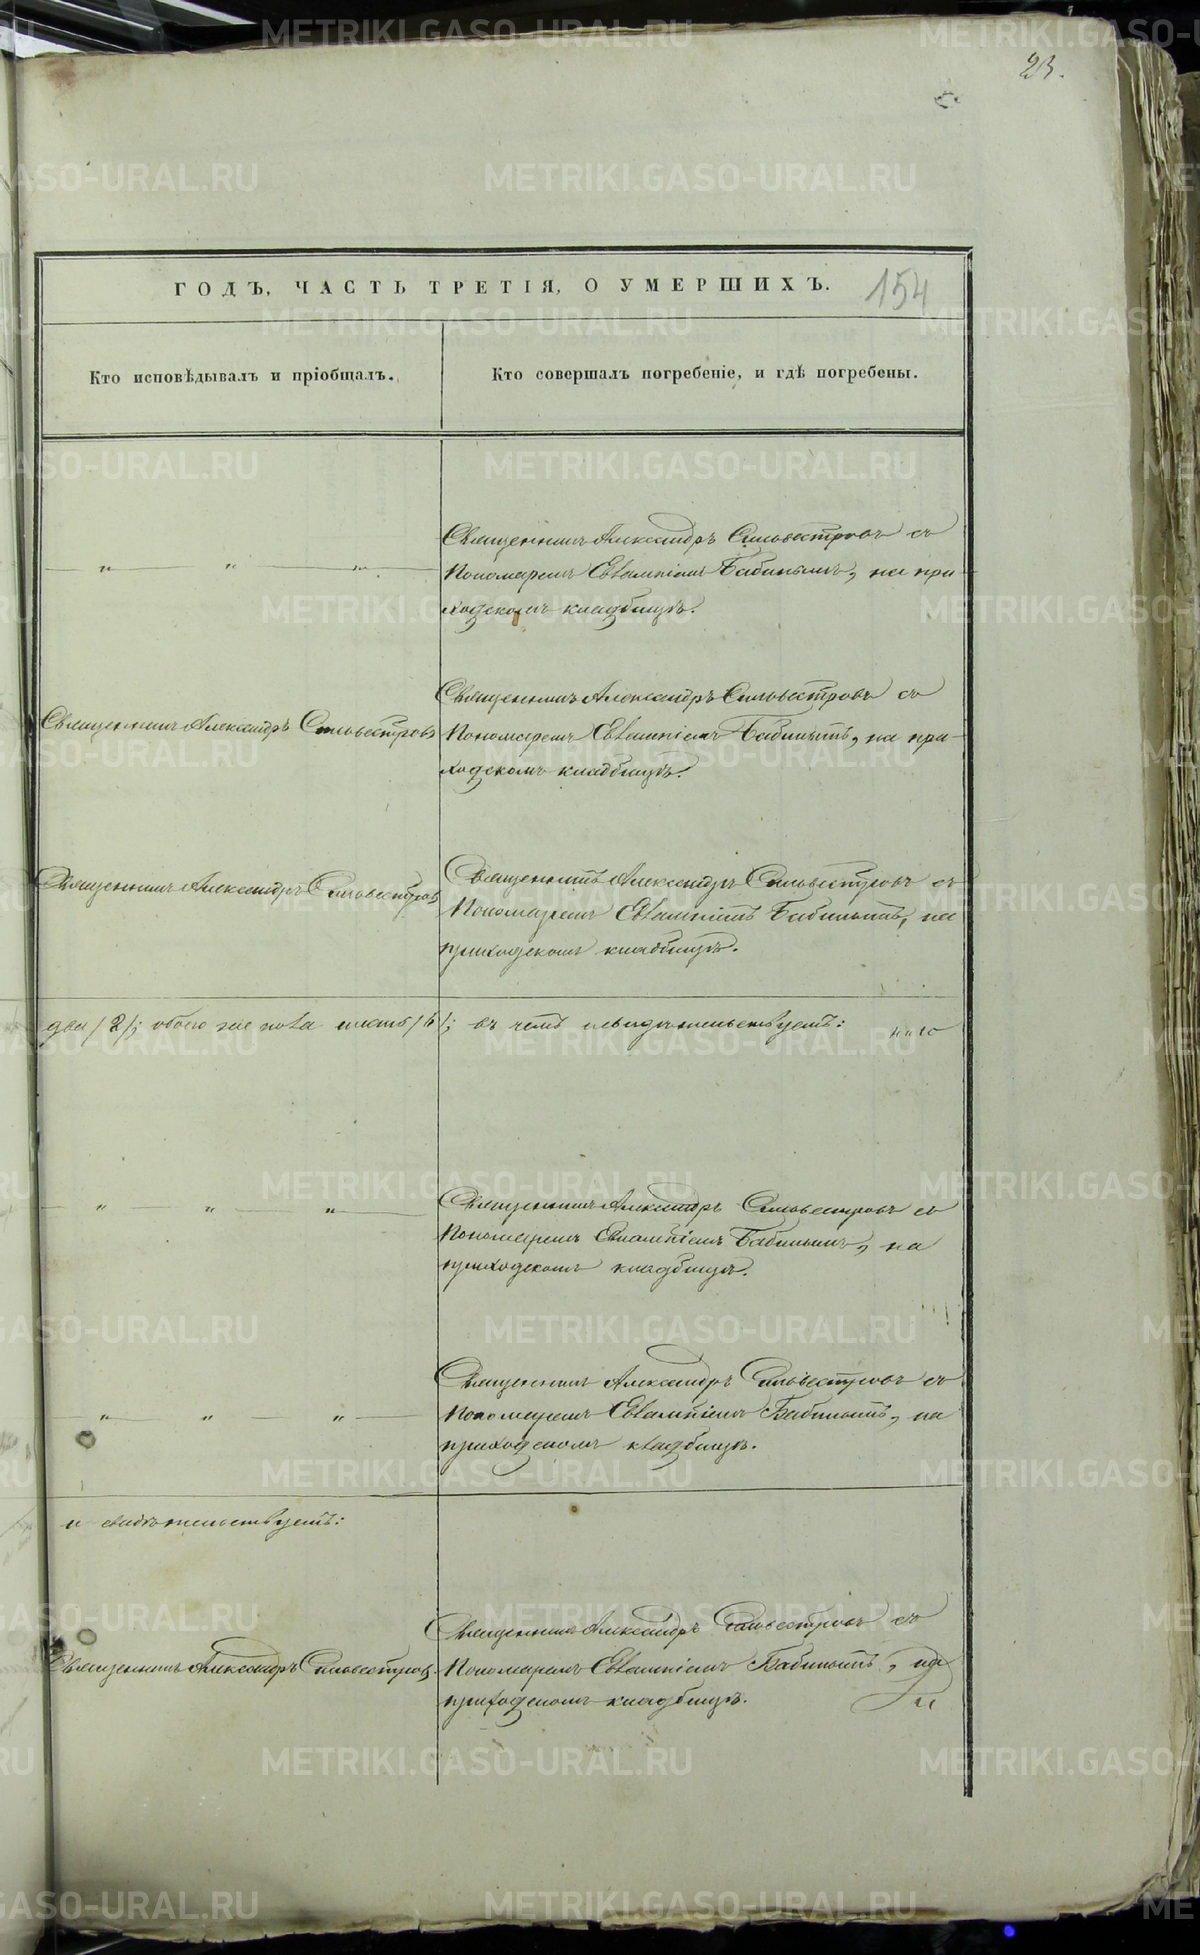 23.
ГОДЪ, ЧАСТЬ ТРЕТІЯ, О УМЕРШИХЪ.
154
Кто исповѣдывалъ и пріобщалъ.
Кто совершалъ погребеніе, и гдѣ погребены.
Священникъ Александръ Сильвестровъ съ
— „ — „ — „ —
Пономаремъ Евлампіемъ Бабинымъ, на при-
ходскомъ кладбищѣ.
Священникъ Александръ Сильвестровъ съ
Священникъ Александръ Сильвестровъ
Пономаремъ Евлампіемъ Бабинымъ, на при-
ходскомъ кладбищѣ.
Священникъ Александръ Сильвестровъ
Священникъ Александръ Сильвестровъ съ
Пономаремъ Евлампіемъ Бабинымъ, на
приходскомъ кладбищѣ.
два /2/; обоего же пола /; въ чемъ и свидѣтельствуемъ:
— „ — „ — „ —
Священникъ Александръ Сильвестровъ съ
Пономаремъ Евлампіемъ Бабинымъ, на
приходскомъ кладбищѣ.
Священникъ Александръ Сильвестровъ съ
— „ „ „ —
Пономаремъ Евлампіемъ Бабинымъ, на
приходскомъ кладбищѣ.
и свидѣтельствуемъ:
Священникъ Александръ Сильвестровъ съ
Священникъ Александръ Сильвестровъ.
Пономаремъ Евлампіемъ Бабинымъ, на
приходскомъ кладбищѣ.
METRIKI.GASO-URAL.RU